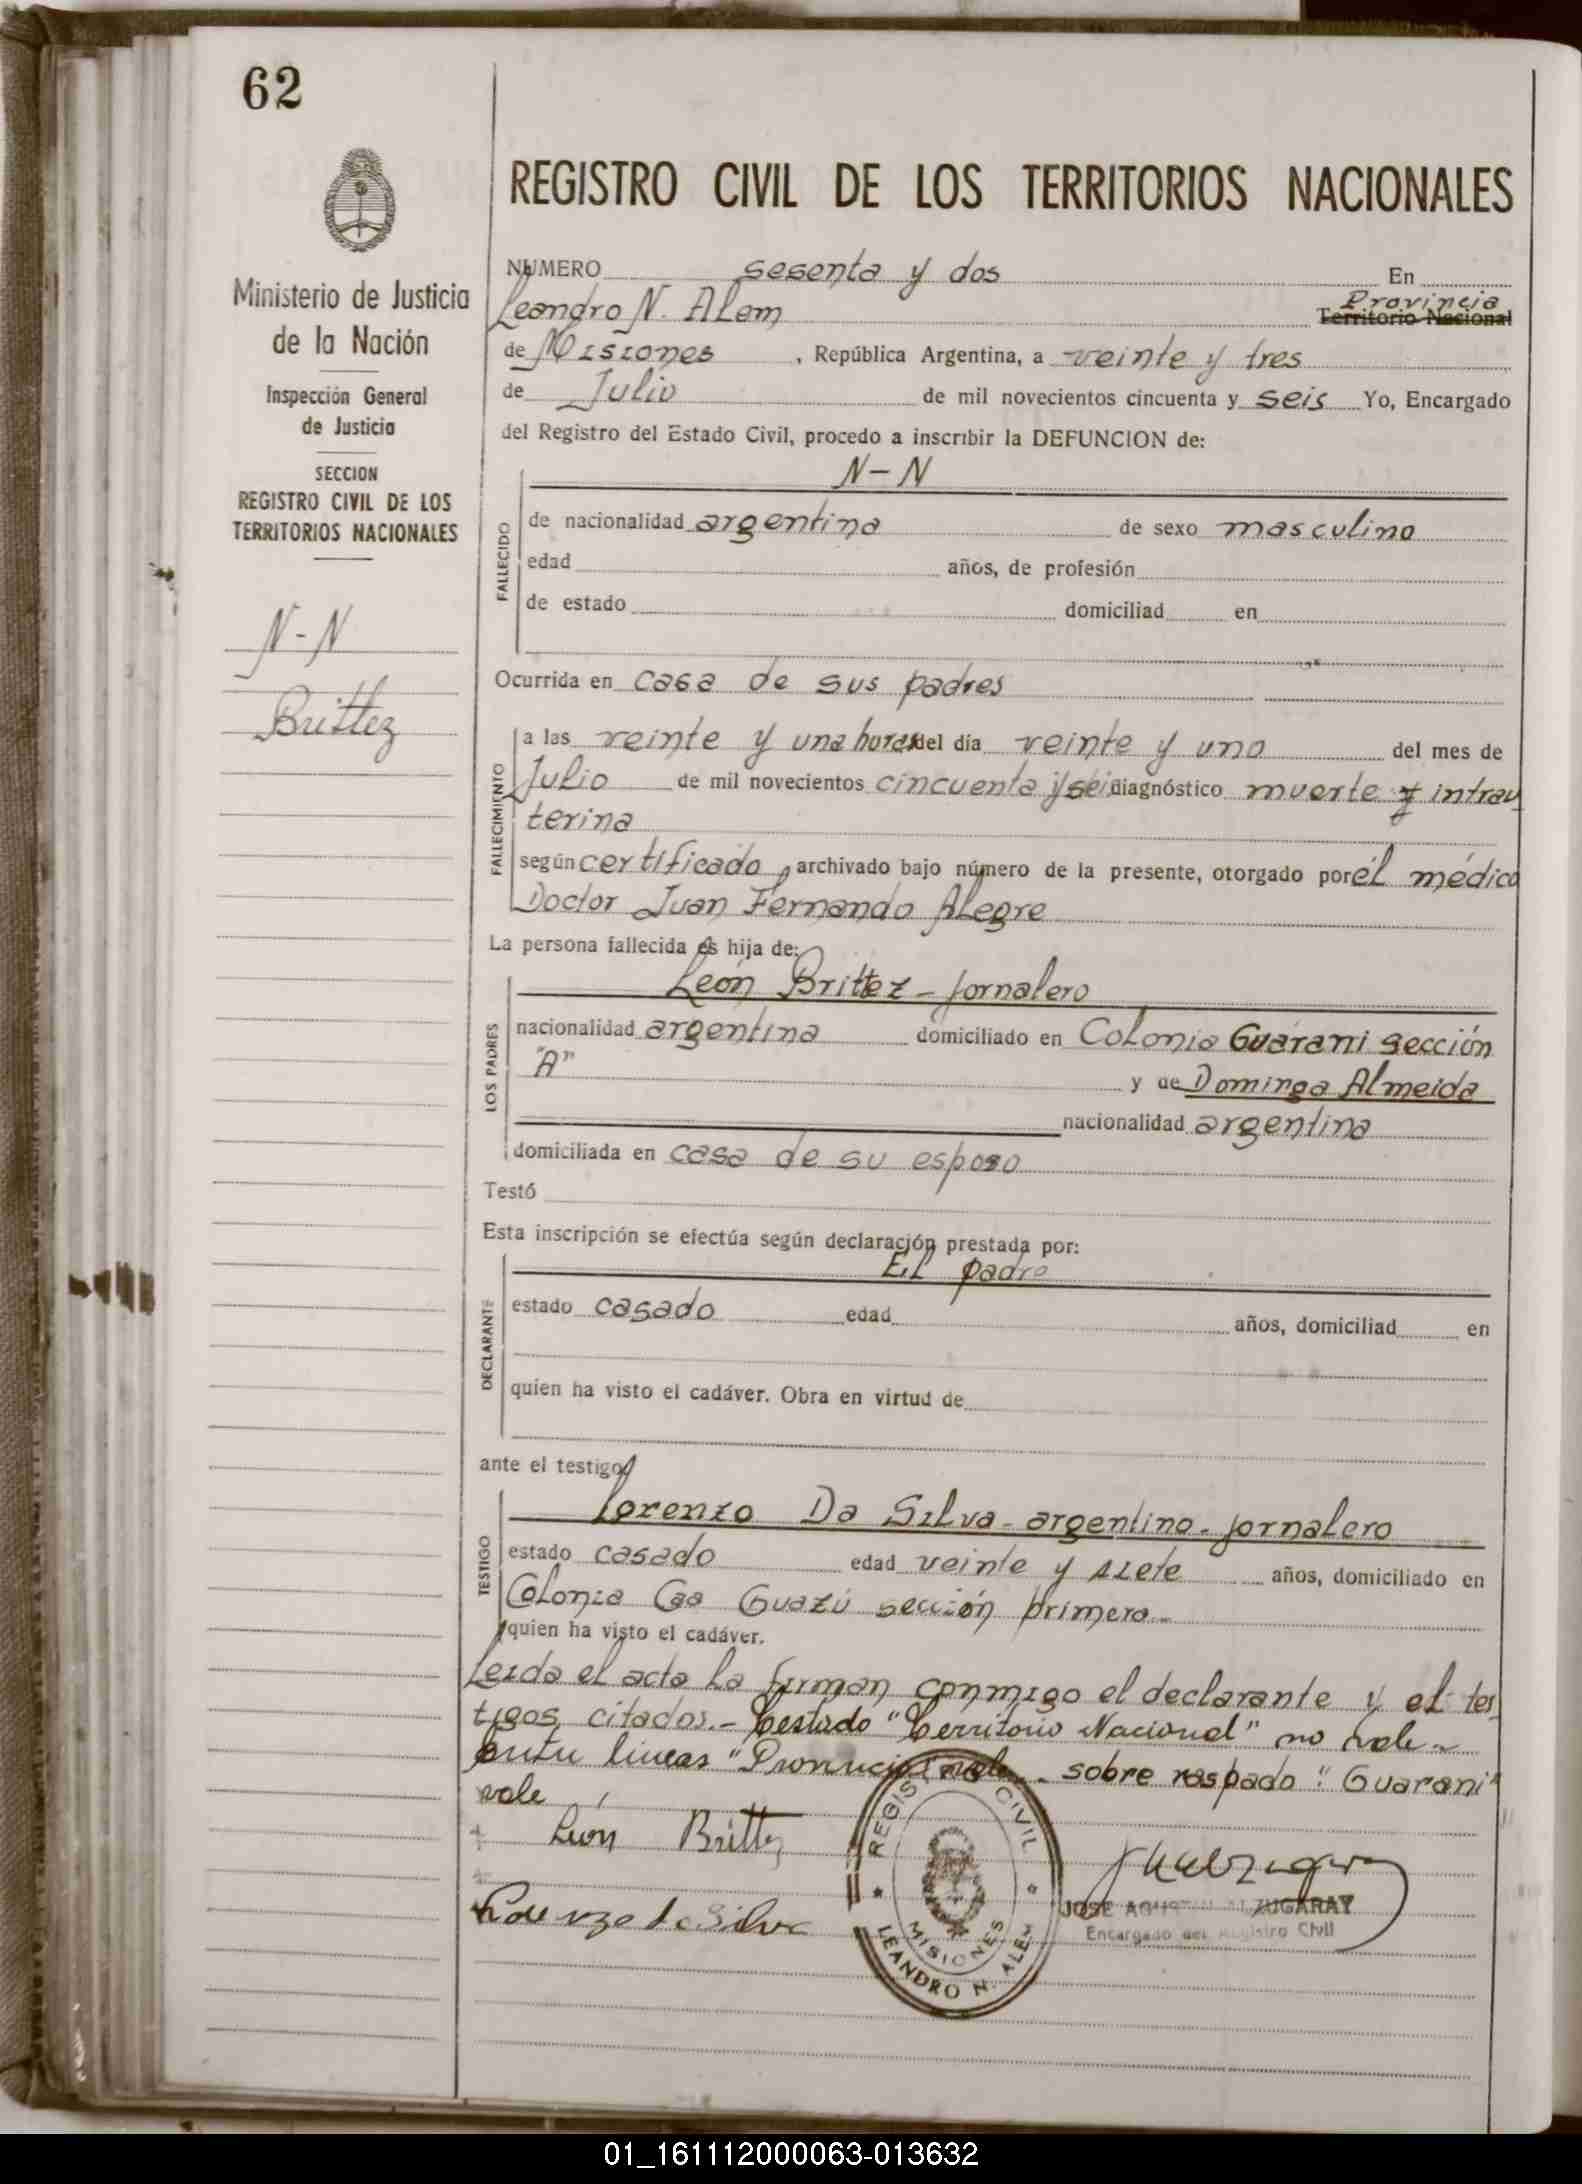 62
REGISTRO CIVIL DE LOS TERRITORIOS NACIONALES
Ministerio de Justicia
de la Nación
Inspección General
de Justicia
SECCION
REGISTRO CIVIL DE LOS
TERRITORIOS NACIONALES
N-N
Brittez
NUMERO sesenta y dos En
Leandro N. Alem Provincia
Territorio Nacional
de Misiones , República Argentina, a veinte y tres
de Julio de mil novecientos cincuenta y seis Yo, Encargado
del Registro del Estado Civil, procedo a inscribir la DEFUNCION de:
N-N
FALLECIDO
de nacionalidad argentina de sexo masculino
edad años, de profesión
de estado domiciliad en
Ocurrida en casa de sus padres
FALLECIMIENTO
a las veinte y una horas del día veinte y uno del mes de
Julio de mil novecientos cincuenta y seis diagnóstico muerte intrau
terina
según certificado , archivado bajo número de la presente, otorgado por él médico
Doctor Juan Fernando Alegre
La persona fallecida es hija de:
León Brittez - jornalero
LOS PADRES
nacionalidad argentina domiciliado en Colonia Guaraní sección
"A" y de Dominga Almeida
nacionalidad argentina
domiciliada en casa de su esposo
Testó
Esta inscripción se efectúa según declaración prestada por:
El padre
DECLARANTE
estado casado edad años, domiciliad en
quien ha visto el cadáver. Obra en virtud de
ante el testigo
Lorenzo Da Silva - argentino - jornalero
TESTIGO
estado casado edad veinte y siete años, domiciliado en
Colonia Caa Guazú sección primera
quien ha visto el cadáver.
Leida el acta la firman conmigo el declarante y el tes
tigos citados.- Testado "Territorio Nacional" no vale -
Entre lineas "Provincia" vale - sobre raspado "Guarani"
vale
León Brittez
Lorenzo da Silva
REGISTRO CIVIL
MISIONES
LEANDRO N. ALEM
JOSE AGUSTIN ALZUGARAY
Encargado del Registro Civil
01_161112000063-013632